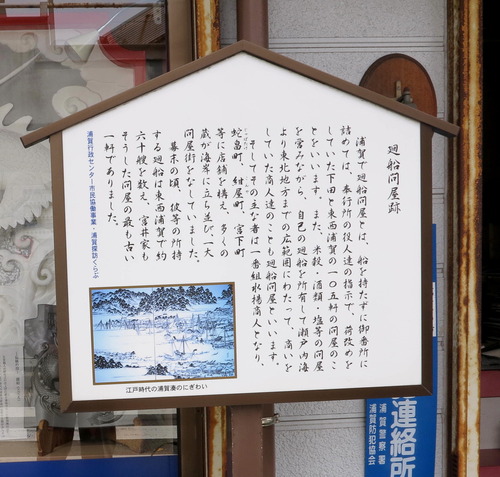 廻船問屋跡
浦賀で廻船問屋とは、船を持たずに御番所に
詰めては、奉行所の役人達の指示で、荷改めを
していた下田と東西浦賀の一〇五軒の問屋のこ
とをいいます。また、米穀・酒類・塩等の問屋
を営みながら、自己の廻船を所有して瀬戸内海
より東北地方までの広範囲にわたって、商いを
していた商人達のことも廻船問屋といいます。
そしてその主な者は一番組水揚商人となり、
蛇畠町、紺屋町、宮下町
等に店舗を構え、多くの
蔵が海岸に立ち並び一大
問屋街をなしていました。
幕末の頃、彼等の所持
する廻船は東西浦賀で約
六十艘を数え、宮井家も
そうした問屋の最も古い
一軒でありました。
浦賀行政センター市民協働事業・浦賀探訪くらぶ
江戸時代の浦賀湊のにぎわい
連絡所
浦賀警察署
浦賀防犯協会